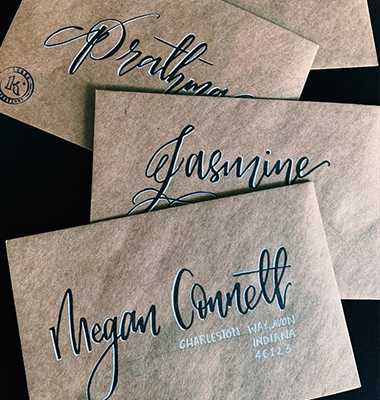 Prathma
Jasmine
Megan Connett
CHARLESTON WAY, AVON
INDIANA
46123